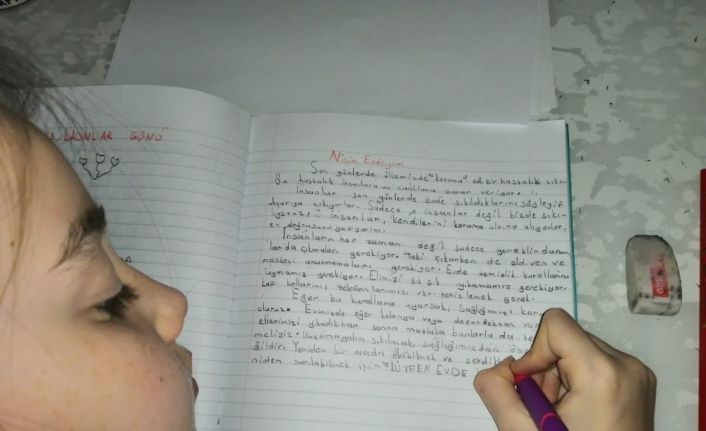 KADINLAR GÜNÜ"
Niçin Evdeyim
Son günlerde ülkemizde "korona" adlı bir hastalık
Bu hastalık insanlara ve canlılara zarar veriyor.
İnsanlar son günlerde evde sıkıldıklarını söyleyip
dışarıya çıkıyorlar. Sadece o insanlar değil bizde sıkı-
lıyoruz! İnsanlar, kendilerini koruma altına alıyorlar,
en doğrusunu yapıyorlar.
İnsanların her zaman değil sadece gerektiğin durum
larda çıkmaları gerekiyor. Tabi çıkarken de eldiven ve
maskeni unutmamaları gerekiyor. Evde temizlik kurallarına
uymamız gerekiyor. Elimizi sık sık yıkamamız gerekiyor.
kapı kollarını, telefonlarımızı vb. temizlemek gerek.
Eğer bu kurallara uyarsak, sağlığımızı
oluruz. Evimizde eğer kolonya veya dezenfektan
ellerimizi yıkadıktan sonra mutlaka bunlarla da
meliyiz. Unutmayalım sıkılmak sağlığımızdan
ğildir. Yeniden bir arada olabilmek ve
niden sarılabilmek için "LÜTFEN EVDE